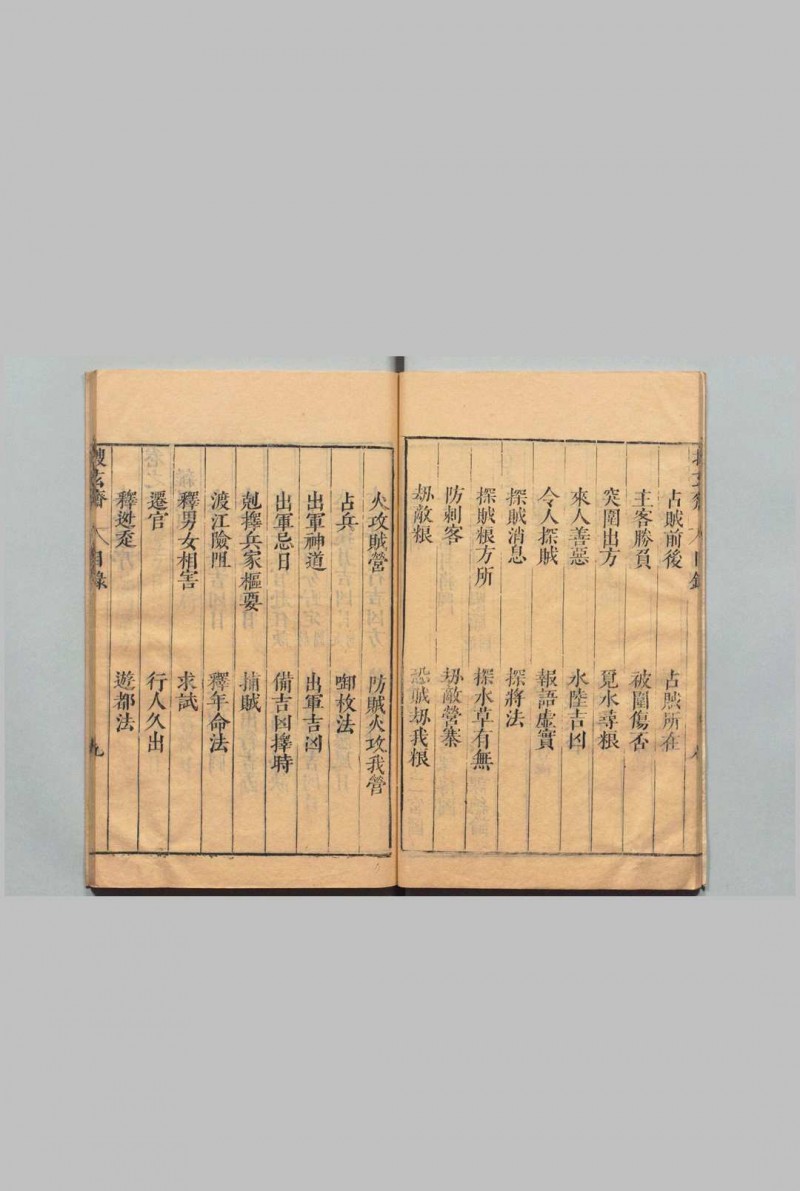 占賊前後　占賊所在
主客勝負　破圍傷否
突圍出方　覓水尋粮
來人善惡　水陸吉凶
令人探賊　報語虛實
探賊消息　探將法
探賊粮方所　探水草有無
防刺客　刼敵營寨
刼敵粮　恐賊刼我粮
火攻賊營　防賊火攻我營
占兵　啣枚法
出軍神道　出軍吉凶
出軍忌日　備吉凶擇時
剋擇兵家樞要　捕賊
渡江險阻　釋年命法
釋男女相害　求試
遷官　行人久出
釋迯𨒪　遊都法
目錄　九